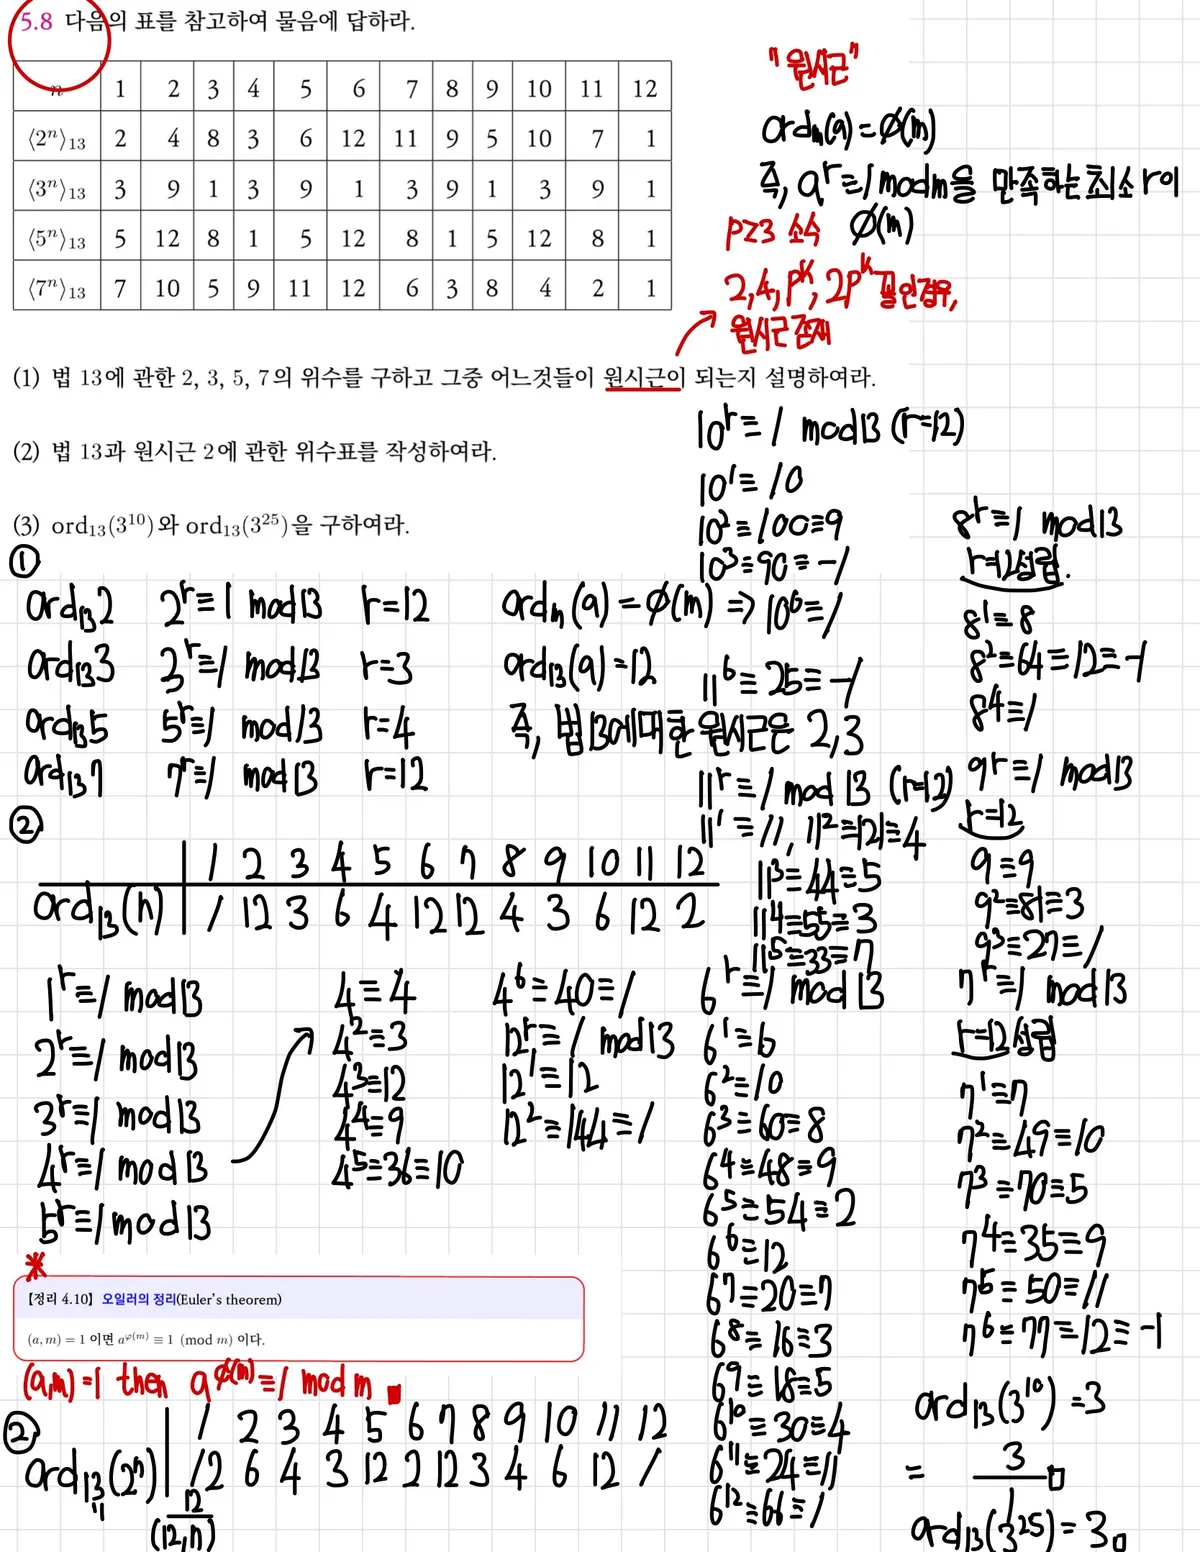 5.8 다음의 표를 참고하여 물음에 답하라.
n 1 2 3 4 5 6 7 8 9 10 11 12
⟨2ⁿ⟩₁₃ 2 4 8 3 6 12 11 9 5 10 7 1
⟨3ⁿ⟩₁₃ 3 9 1 3 9 1 3 9 1 3 9 1
⟨5ⁿ⟩₁₃ 5 12 8 1 5 12 8 1 5 12 8 1
⟨7ⁿ⟩₁₃ 7 10 5 9 11 12 6 3 8 4 2 1
"원시근"
ordₘ(a)=ϕ(m)
즉, aʳ≡1 mod m을 만족하는 최소 r이
ϕ(m)
p≥3 소수
2,4,pᵏ, 2pᵏ 꼴인경우,
원시근 존재
(1) 법 13에 관한 2, 3, 5, 7의 위수를 구하고 그중 어느것들이 원시근이 되는지 설명하여라.
(2) 법 13과 원시근 2에 관한 위수표를 작성하여라.
(3) ord₁₃(3¹⁰)와 ord₁₃(3²⁵)을 구하여라.
①
ord₁₃2 2ʳ≡1 mod 13 r=12
ord₁₃3 3ʳ≡1 mod 13 r=3
ord₁₃5 5ʳ≡1 mod 13 r=4
ord₁₃7 7ʳ≡1 mod 13 r=12
ordₘ(a)=ϕ(m) ⇒
ord₁₃(a)=12
즉, 법 13에 대한 원시근은 2,3
10ʳ≡1 mod 13 (r=12)
10¹≡10
10²≡100≡9
10³≡90≡-1
10⁶≡1
11⁶≡25≡-1
11ʳ≡1 mod 13 (r=12)
11¹≡11, 11²≡121≡4
11³≡44≡5
11⁴≡55≡3
11⁵≡33≡7
8ʳ≡1 mod 13
r=12성립.
8¹≡8
8²≡64≡12≡-1
8⁴≡1
9ʳ≡1 mod 13
r=12
9≡9
9²≡81≡3
9³≡27≡1
②
1 2 3 4 5 6 7 8 9 10 11 12
ord₁₃(n) 1 12 3 6 4 12 12 4 3 6 12 2
1ʳ≡1 mod 13
2ʳ≡1 mod 13
3ʳ≡1 mod 13
4ʳ≡1 mod 13
5ʳ≡1 mod 13
4≡4
4²≡3
4³≡12
4⁴≡9
4⁵≡36≡10
4⁶≡40≡1
12ʳ≡1 mod 13
12¹≡12
12²≡144≡1
6ʳ≡1 mod 13
6¹≡6
6²≡10
6³≡60≡8
6⁴≡48≡9
6⁵≡54≡2
6⁶≡12
6⁷≡20≡7
6⁸≡16≡3
6⁹≡18≡5
6¹⁰≡30≡4
6¹¹≡24≡11
6¹²≡66≡1
7ʳ≡1 mod 13
r=12성립
7¹≡7
7²≡49≡10
7³≡70≡5
7⁴≡35≡9
7⁵≡50≡11
7⁶≡77≡12≡-1
*
【정리 4.10】 오일러의 정리(Euler's theorem)
(a, m) = 1 이면 a^φ(m) ≡ 1 (mod m) 이다.
(a,m)=1 then a^ϕ(m)≡1 mod m
②
1 2 3 4 5 6 7 8 9 10 11 12
ord₁₃(2ⁿ) 12 6 4 3 12 2 12 3 4 6 12 1
12/(12,n)
ord₁₃(3¹⁰)=3
= 3/1
ord₁₃(3²⁵)=3